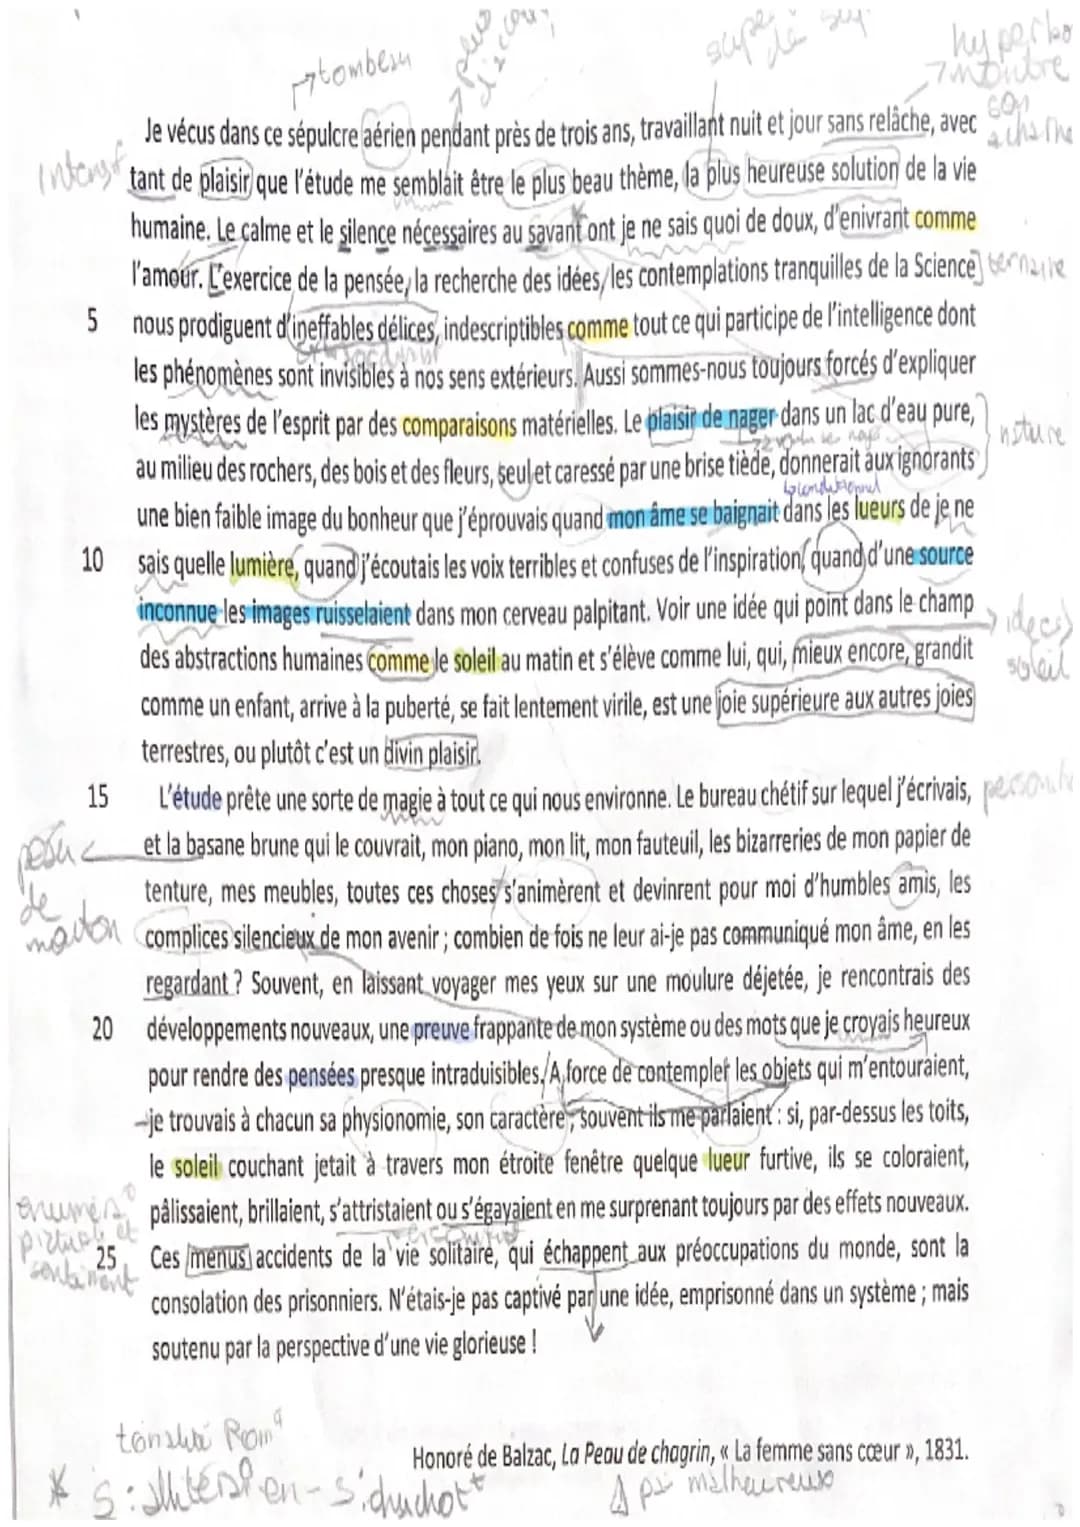 tombeau
hyperbo
montre
son
acharne
Je vécus dans ce sépulcre aérien pendant près de trois ans, travaillant nuit et jour sans relâche, avec
intensif
tant de plaisir que l'étude me semblait être le plus beau thème, la plus heureuse solution de la vie
humaine. Le calme et le silence nécessaires au savant ont je ne sais quoi de doux, d'enivrant comme
l'amour. L'exercice de la pensée, la recherche des idées, les contemplations tranquilles de la Science ternaire
5 nous prodiguent d'ineffables délices, indescriptibles comme tout ce qui participe de l'intelligence dont
les phénomènes sont invisibles à nos sens extérieurs. Aussi sommes-nous toujours forcés d'expliquer
les mystères de l'esprit par des comparaisons matérielles. Le plaisir de nager dans un lac d'eau pure,
nature
au milieu des rochers, des bois et des fleurs, seul et caressé par une brise tiède, donnerait aux ignorants
conditionnel
une bien faible image du bonheur que j'éprouvais quand mon âme se baignait dans les lueurs de je ne
10 sais quelle lumière, quand j'écoutais les voix terribles et confuses de l'inspiration, quand d'une source
inconnue les images ruisselaient dans mon cerveau palpitant. Voir une idée qui point dans le champ
idées
soleil
des abstractions humaines comme le soleil au matin et s'élève comme lui, qui, mieux encore, grandit
comme un enfant, arrive à la puberté, se fait lentement virile, est une joie supérieure aux autres joies
terrestres, ou plutôt c'est un divin plaisir.
15 L'étude prête une sorte de magie à tout ce qui nous environne. Le bureau chétif sur lequel j'écrivais,
peau
de
mouton
et la basane brune qui le couvrait, mon piano, mon lit, mon fauteuil, les bizarreries de mon papier de
tenture, mes meubles, toutes ces choses s'animèrent et devinrent pour moi d'humbles amis, les
complices silencieux de mon avenir ; combien de fois ne leur ai-je pas communiqué mon âme, en les
regardant ? Souvent, en laissant voyager mes yeux sur une moulure déjetée, je rencontrais des
20 développements nouveaux, une preuve frappante de mon système ou des mots que je croyais heureux
pour rendre des pensées presque intraduisibles. A force de contempler les objets qui m'entouraient,
je trouvais à chacun sa physionomie, son caractère ; souvent ils me parlaient : si, par-dessus les toits,
le soleil couchant jetait à travers mon étroite fenêtre quelque lueur furtive, ils se coloraient,
pâlissaient, brillaient, s'attristaient ou s'égayaient en me surprenant toujours par des effets nouveaux.
25 Ces menus accidents de la vie solitaire, qui échappent aux préoccupations du monde, sont la
consolation des prisonniers. N'étais-je pas captivé par une idée, emprisonné dans un système ; mais
soutenu par la perspective d'une vie glorieuse !
tonalité Rom
Honoré de Balzac, La Peau de chagrin, « La femme sans cœur », 1831.
malheureuse